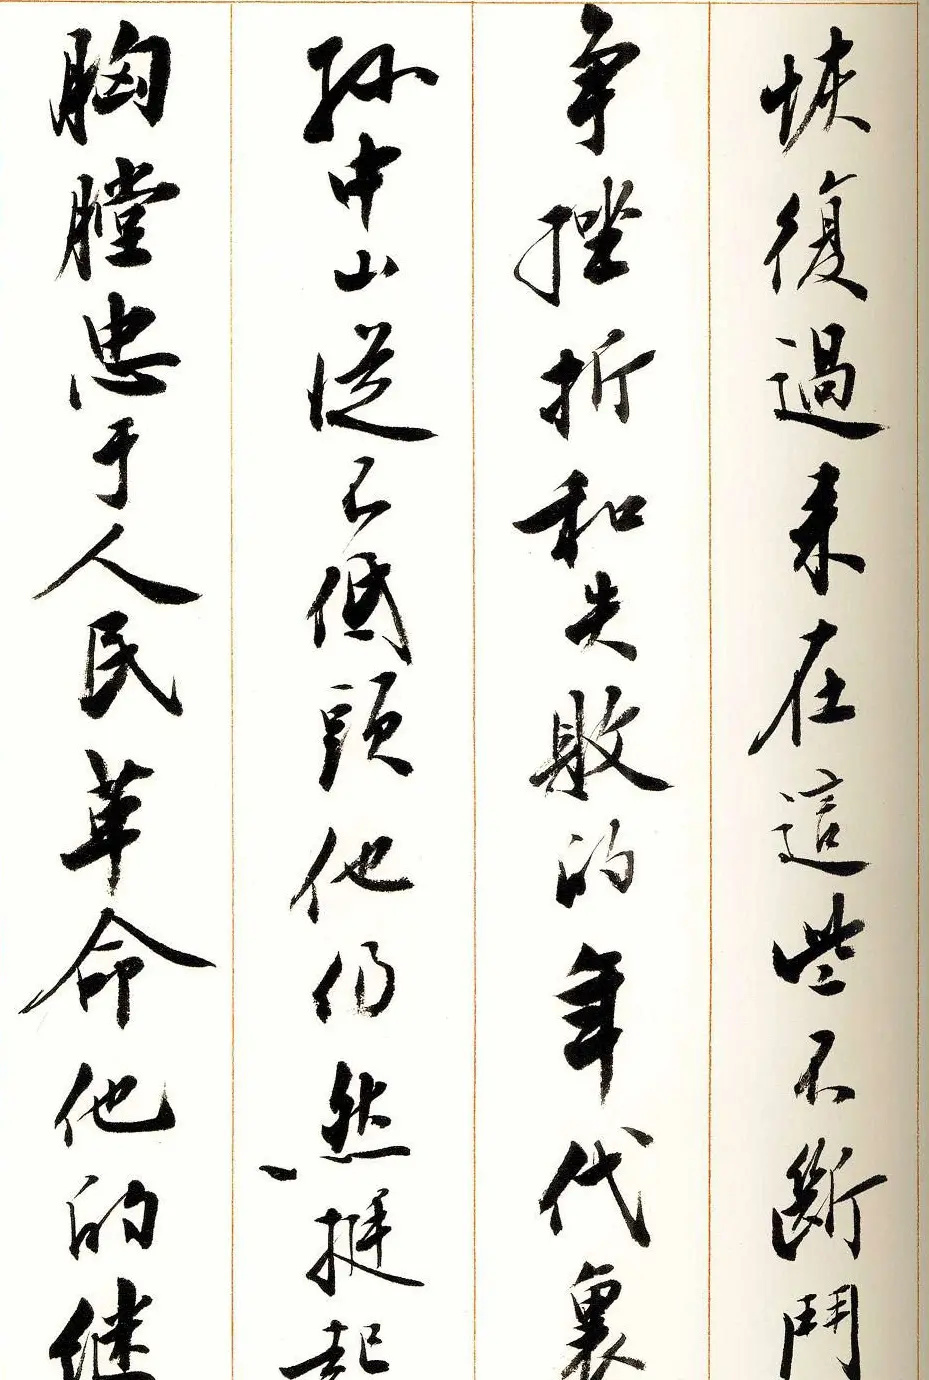 恢復過来在這些不斷鬥
争挫折和失敗的年代裏
孙中山從不低頭他仍然挺起
胸膛忠于人民革命他的继